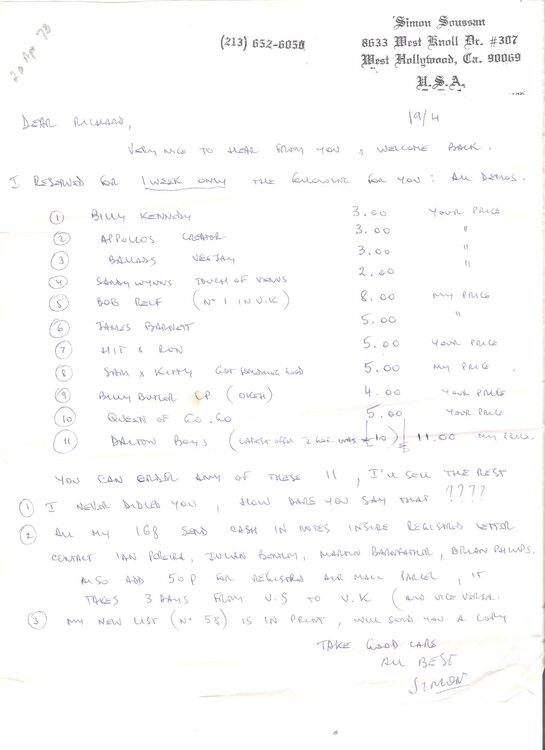 Simon Soussan
(213) 652-6050
8633 West Knoll Dr. #307
West Hollywood, Ca. 90069
U.S.A.
20 Apr 73
19/4
DEAR RICHARD,
VERY NICE TO HEAR FROM YOU, WELCOME BACK.
I RESERVED FOR 1 WEEK ONLY THE FOLLOWING FOR YOU: ALL DEMOS.
1 BILLY KENNEDY 3.00 YOUR PRICE
2 APPOLLOS CREATOR 3.00 "
3 BALLADS VEEJAY 3.00 "
4 SANDY WYNNS TOUCH OF VENUS 2.00
5 BOB RELF (No 1 IN U.K) 8.00 MY PRICE
6 JAMES BARNETT 5.00 "
7 HIT & RUN 5.00 YOUR PRICE
8 SAM & KITTY GOT SOMETHING GOOD 5.00 MY PRICE
9 BILLY BUTLER LP (OKEH) 4.00 YOUR PRICE
10 QUEEN OF GO.GO 5.00 YOUR PRICE
11 DALTON BOYS (LARGEST OFFER I GOT WAS £10) £11.00 MY PRICE.
YOU CAN ORDER ANY OF THESE 11, I'LL SELL THE REST
1 I NEVER DIDLED YOU, HOW DARE YOU SAY THAT ????
2 ALL MY SEND CASH IN NOTES INSIDE REGISTRED LETTER
CONTACT IAN PEREIRA, JULIAN BENTLEY, MARTIN BARNFATHER, BRIAN PHILIPS.
ALSO ADD 50P FOR REGISTRED AIR MAIL PARCEL, IT
TAKES 3 DAYS FROM U.S TO U.K (AND VICE VERSA.
3 MY NEW LIST (No 58) IS IN PRINT, WILL SEND YOU A COPY
TAKE GOOD CARE
ALL BEST
SIMON